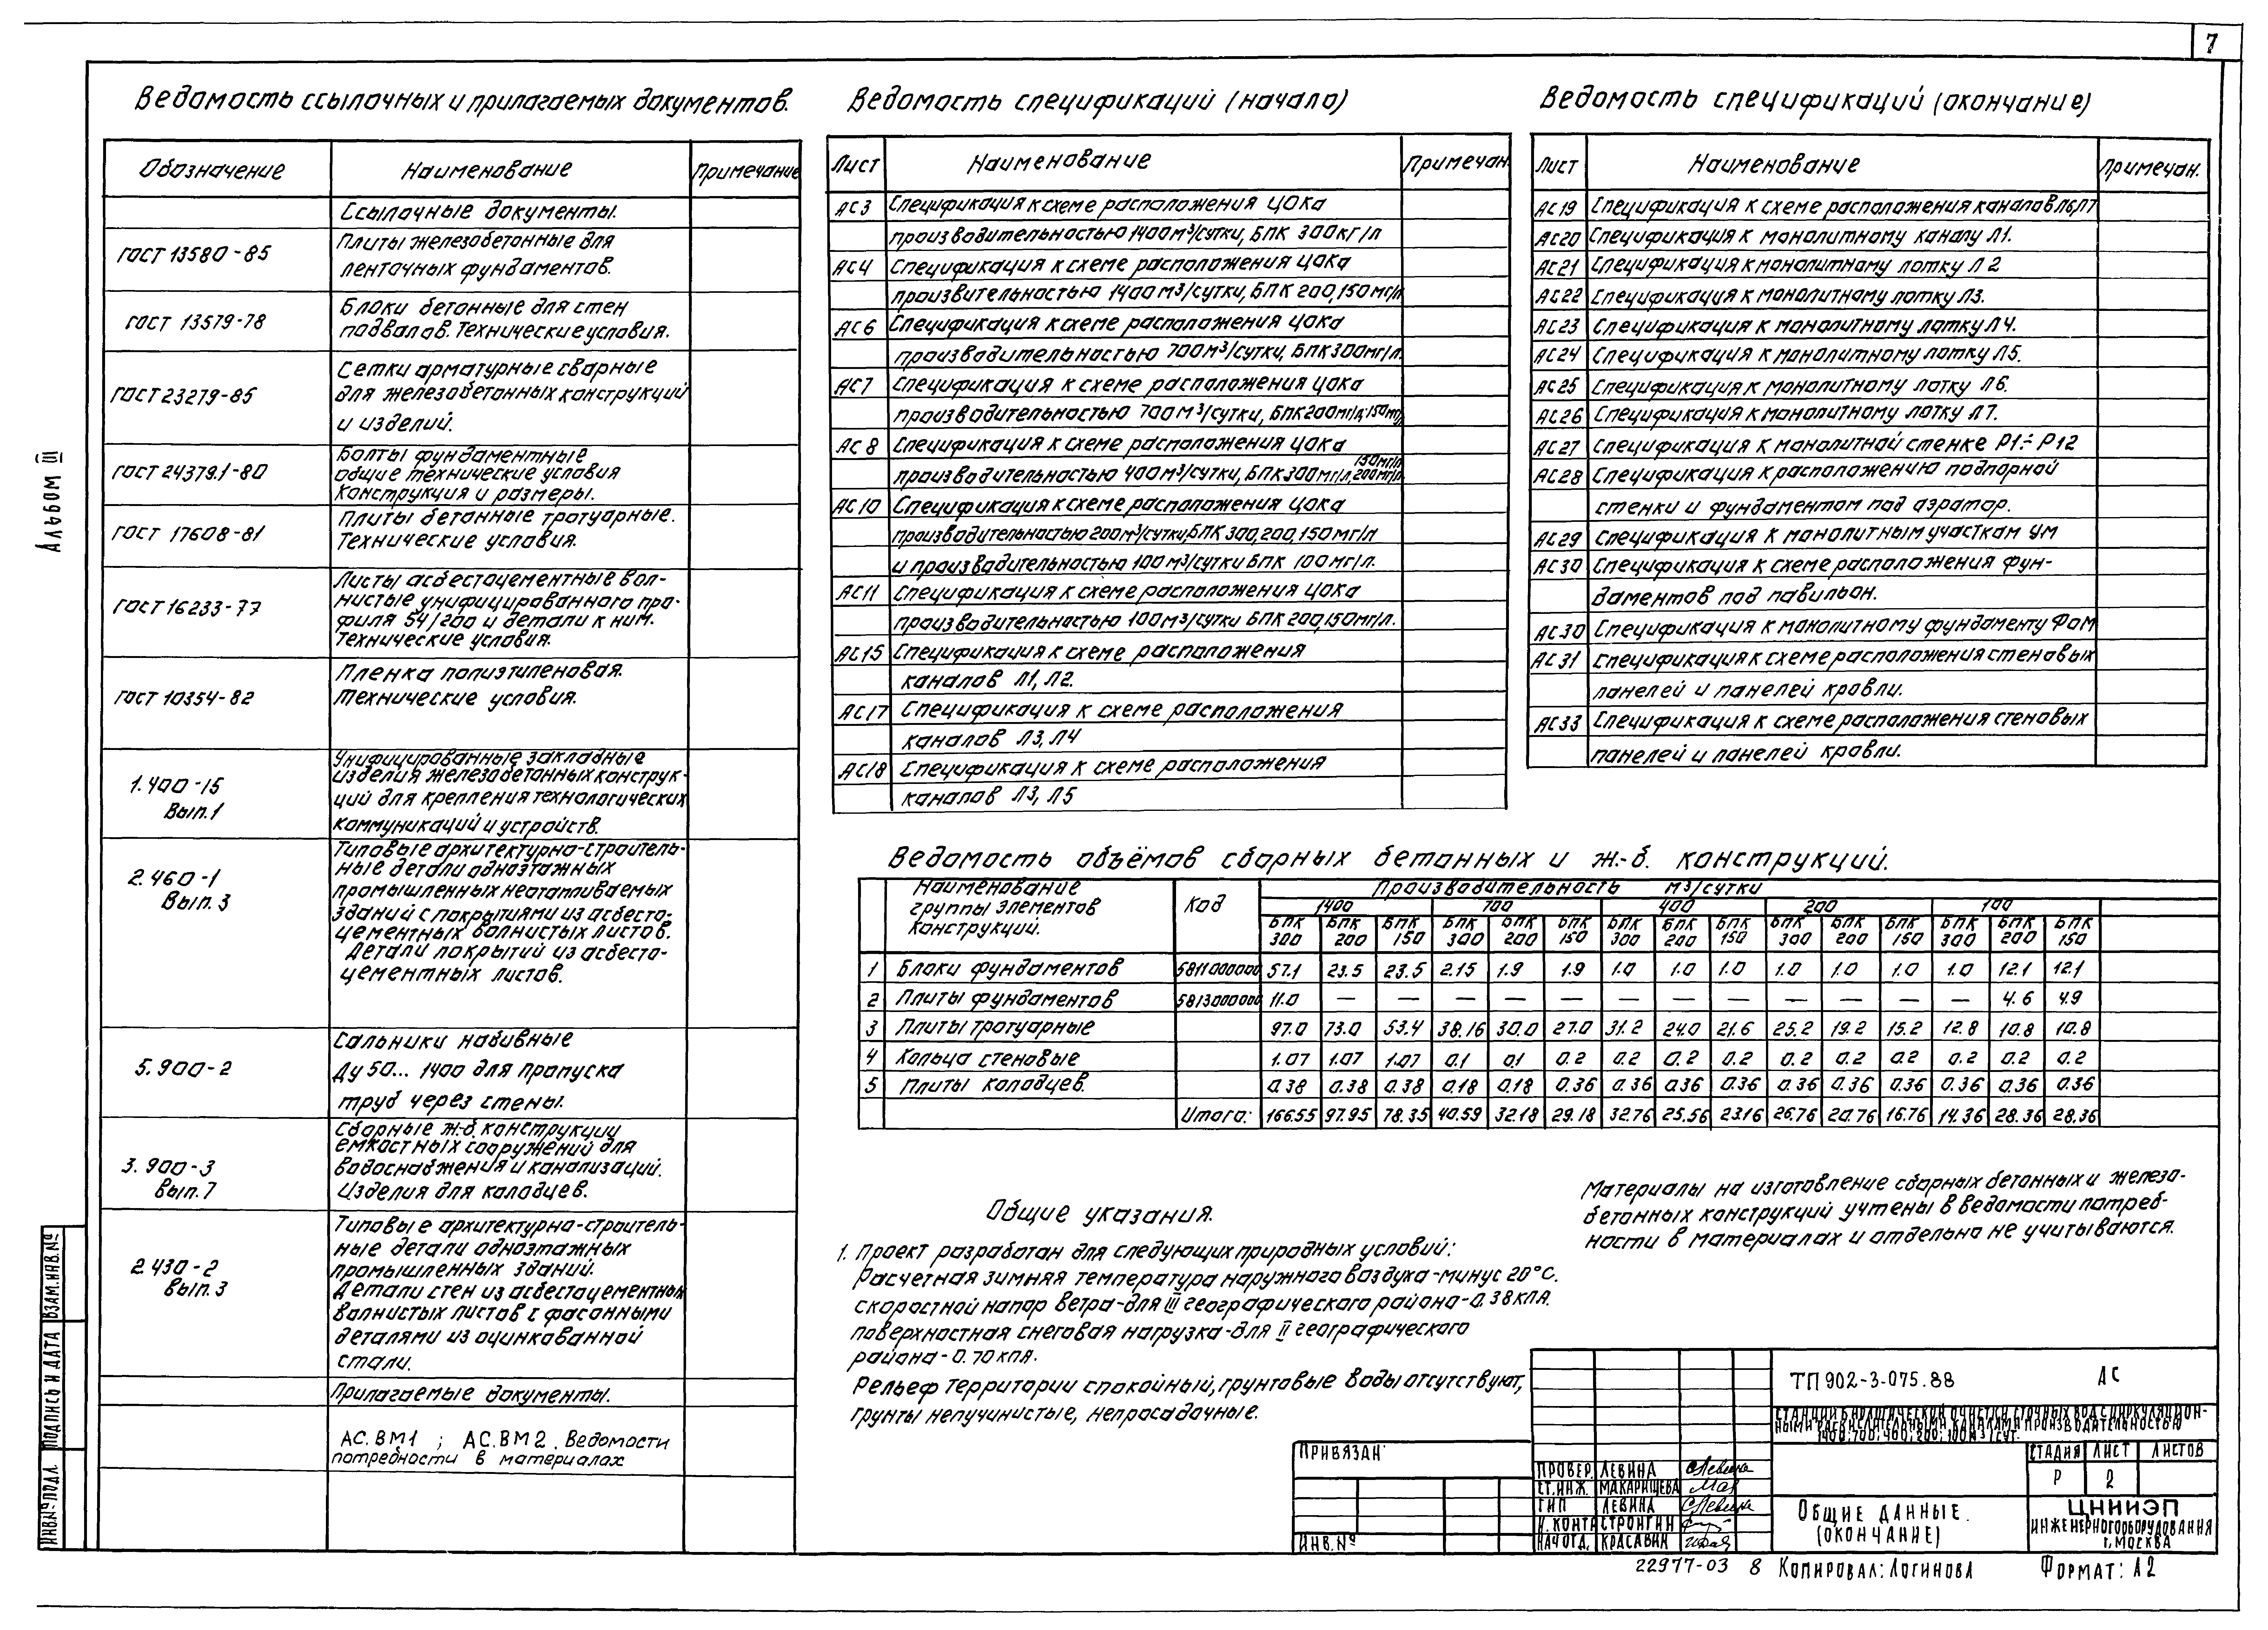 7
Альбом III
Ведомость ссылочных и прилагаемых документов.
Обозначение Наименование Примечание
Ссылочные документы.
ГОСТ 13580-85 Плиты железобетонные для
ленточных фундаментов.
ГОСТ 13579-78 Блоки бетонные для стен
подвалов. Технические условия.
ГОСТ 23279-85 Сетки арматурные сварные
для железобетонных конструкций
и изделий.
ГОСТ 24379.1-80 Болты фундаментные
общие технические условия
Конструкция и размеры.
ГОСТ 17608-81 Плиты бетонные тротуарные.
Технические условия.
ГОСТ 16233-77 Листы асбестоцементные вол-
нистые унифицированного про-
филя 54/200 и детали к ним.
Технические условия.
ГОСТ 10354-82 Пленка полиэтиленовая.
Технические условия.
1.400-15 Вып.1 Унифицированные закладные
изделия железобетонных конструк-
ций для крепления технологических
коммуникаций и устройств.
2.460-1 Вып.3 Типовые архитектурно-строитель-
ные детали одноэтажных
промышленных неотапливаемых
зданий с покрытиями из асбесто-
цементных волнистых листов.
Детали покрытий из асбесто-
цементных листов.
5.900-2 Сальники набивные
Ду 50... 1400 для пропуска
труб через стены.
3.900-3 Вып.7 Сборные ж.-б. конструкции
емкостных сооружений для
водоснабжения и канализаций.
Изделия для колодцев.
2.430-2 Вып.3 Типовые архитектурно-строитель-
ные детали одноэтажных
промышленных зданий.
Детали стен из асбестоцементных
волнистых листов с фасонными
деталями из оцинкованной
стали.
Прилагаемые документы.
АС.ВМ1 ; АС.ВМ2. Ведомости
потребности в материалах
Ведомость спецификаций (начало)
Лист Наименование Примечан.
АС3 Спецификация к схеме расположения ЦОКа
производительностью 1400м³/сутки, БПК 300кг/л
АС4 Спецификация к схеме расположения ЦОКа
произвительностью 1400м³/сутки, БПК 200,150мг/л
АС6 Спецификация к схеме расположения ЦОКа
производительностью 700м³/сутки, БПК300мг/л.
АС7 Спецификация к схеме расположения ЦОКа
производительностью 700м³/сутки, БПК200мг/л,150мг/л
АС8 Спецификация к схеме расположения ЦОКа
производительностью 400м³/сутки, БПК300мг/л, 150мг/л 200мг/л
АС10 Спецификация к схеме расположения ЦОКа
производительностью 200м³/сутки,БПК 300,200,150мг/л
и производительностью 100м³/сутки БПК 100мг/л.
АС11 Спецификация к схеме расположения ЦОКа
производительностью 100м³/сутки БПК 200,150мг/л.
АС15 Спецификация к схеме расположения
каналов Л1, Л2.
АС17 Спецификация к схеме расположения
каналов Л3, Л4
АС18 Спецификация к схеме расположения
каналов Л3, Л5
Ведомость спецификаций (окончание)
Лист Наименование Примечан.
АС19 Спецификация к схеме расположения каналов Л6,Л7
АС20 Спецификация к монолитному каналу Л1.
АС21 Спецификация к монолитному лотку Л2
АС22 Спецификация к монолитному лотку Л3.
АС23 Спецификация к монолитному лотку Л4.
АС24 Спецификация к монолитному лотку Л5.
АС25 Спецификация к монолитному лотку Л6.
АС26 Спецификация к монолитному лотку Л7.
АС27 Спецификация к монолитной стенке Р1÷Р12
АС28 Спецификация к расположению подпорной
стенки и фундаментом под аэратор.
АС29 Спецификация к монолитным участкам УМ
АС30 Спецификация к схеме расположения фун-
даментов под павильон.
АС30 Спецификация к монолитному фундаменту ФОМ
АС31 Спецификация к схеме расположения стеновых
панелей и панелей кровли.
АС33 Спецификация к схеме расположения стеновых
панелей и панелей кровли.
Ведомость объёмов сборных бетонных и ж.-б. конструкций.
Наименование группы элементов конструкций. Код Производительность м³/сутки
1400 700 400 200 100
БПК 300 БПК 200 БПК 150 БПК 300 БПК 200 БПК 150 БПК 300 БПК 200 БПК 150 БПК 300 БПК 200 БПК 150 БПК 300 БПК 200 БПК 150
1 Блоки фундаментов 5811000000 57.1 23.5 23.5 2.15 1.9 1.9 1.0 1.0 1.0 1.0 1.0 1.0 1.0 12.1 12.1
2 Плиты фундаментов 5813000000 11.0 — — — — — — — — — — — — 4.6 4.9
3 Плиты тротуарные 97.0 73.0 53.4 38.16 30.0 27.0 31.2 24.0 21.6 25.2 19.2 15.2 12.8 10.8 10.8
4 Кольца стеновые 1.07 1.07 1.07 0.1 0.1 0.2 0.2 0.2 0.2 0.2 0.2 0.2 0.2 0.2 0.2
5 Плиты колодцев. 0.38 0.38 0.38 0.18 0.18 0.36 0.36 0.36 0.36 0.36 0.36 0.36 0.36 0.36 0.36
Итого: 166.55 97.95 78.35 40.59 32.18 29.18 32.76 25.56 23.16 26.76 20.76 16.76 14.36 28.36 28.36
Общие указания.
1. Проект разработан для следующих природных условий:
Расчетная зимняя температура наружного воздуха-минус 20°С.
скоростной напор ветра-для III географического района-0.38кПа.
поверхностная снеговая нагрузка-для II географического
района-0.70кпа.
Рельеф территории спокойный, грунтовые воды отсутствуют,
грунты непучинистые, непросадочные.
Материалы на изготовление сборных бетонных и железо-
бетонных конструкций учтены в ведомости потреб-
ности в материалах и отдельно не учитываются.
ТП 902-3-075.88 АС
Станции биологической очистки сточных вод с циркуляцион-
ными окислительными каналами производительностью
1400;700;400;200;100м³/сут.
Стадия Лист Листов
Р 2
Общие данные.
(окончание)
ЦНИИЭП
инженерного оборудования
г. Москва
Привязан
Инв.№
Провер. Левина
Ст.инж. Макарищева
ГИП Левина
Н.конт. Стронгин
Нач.отд. Красавин
Инв.№подл. Подпись и дата Взам.инв.№
22977-03 8 Копировал: Логинова Формат: А2